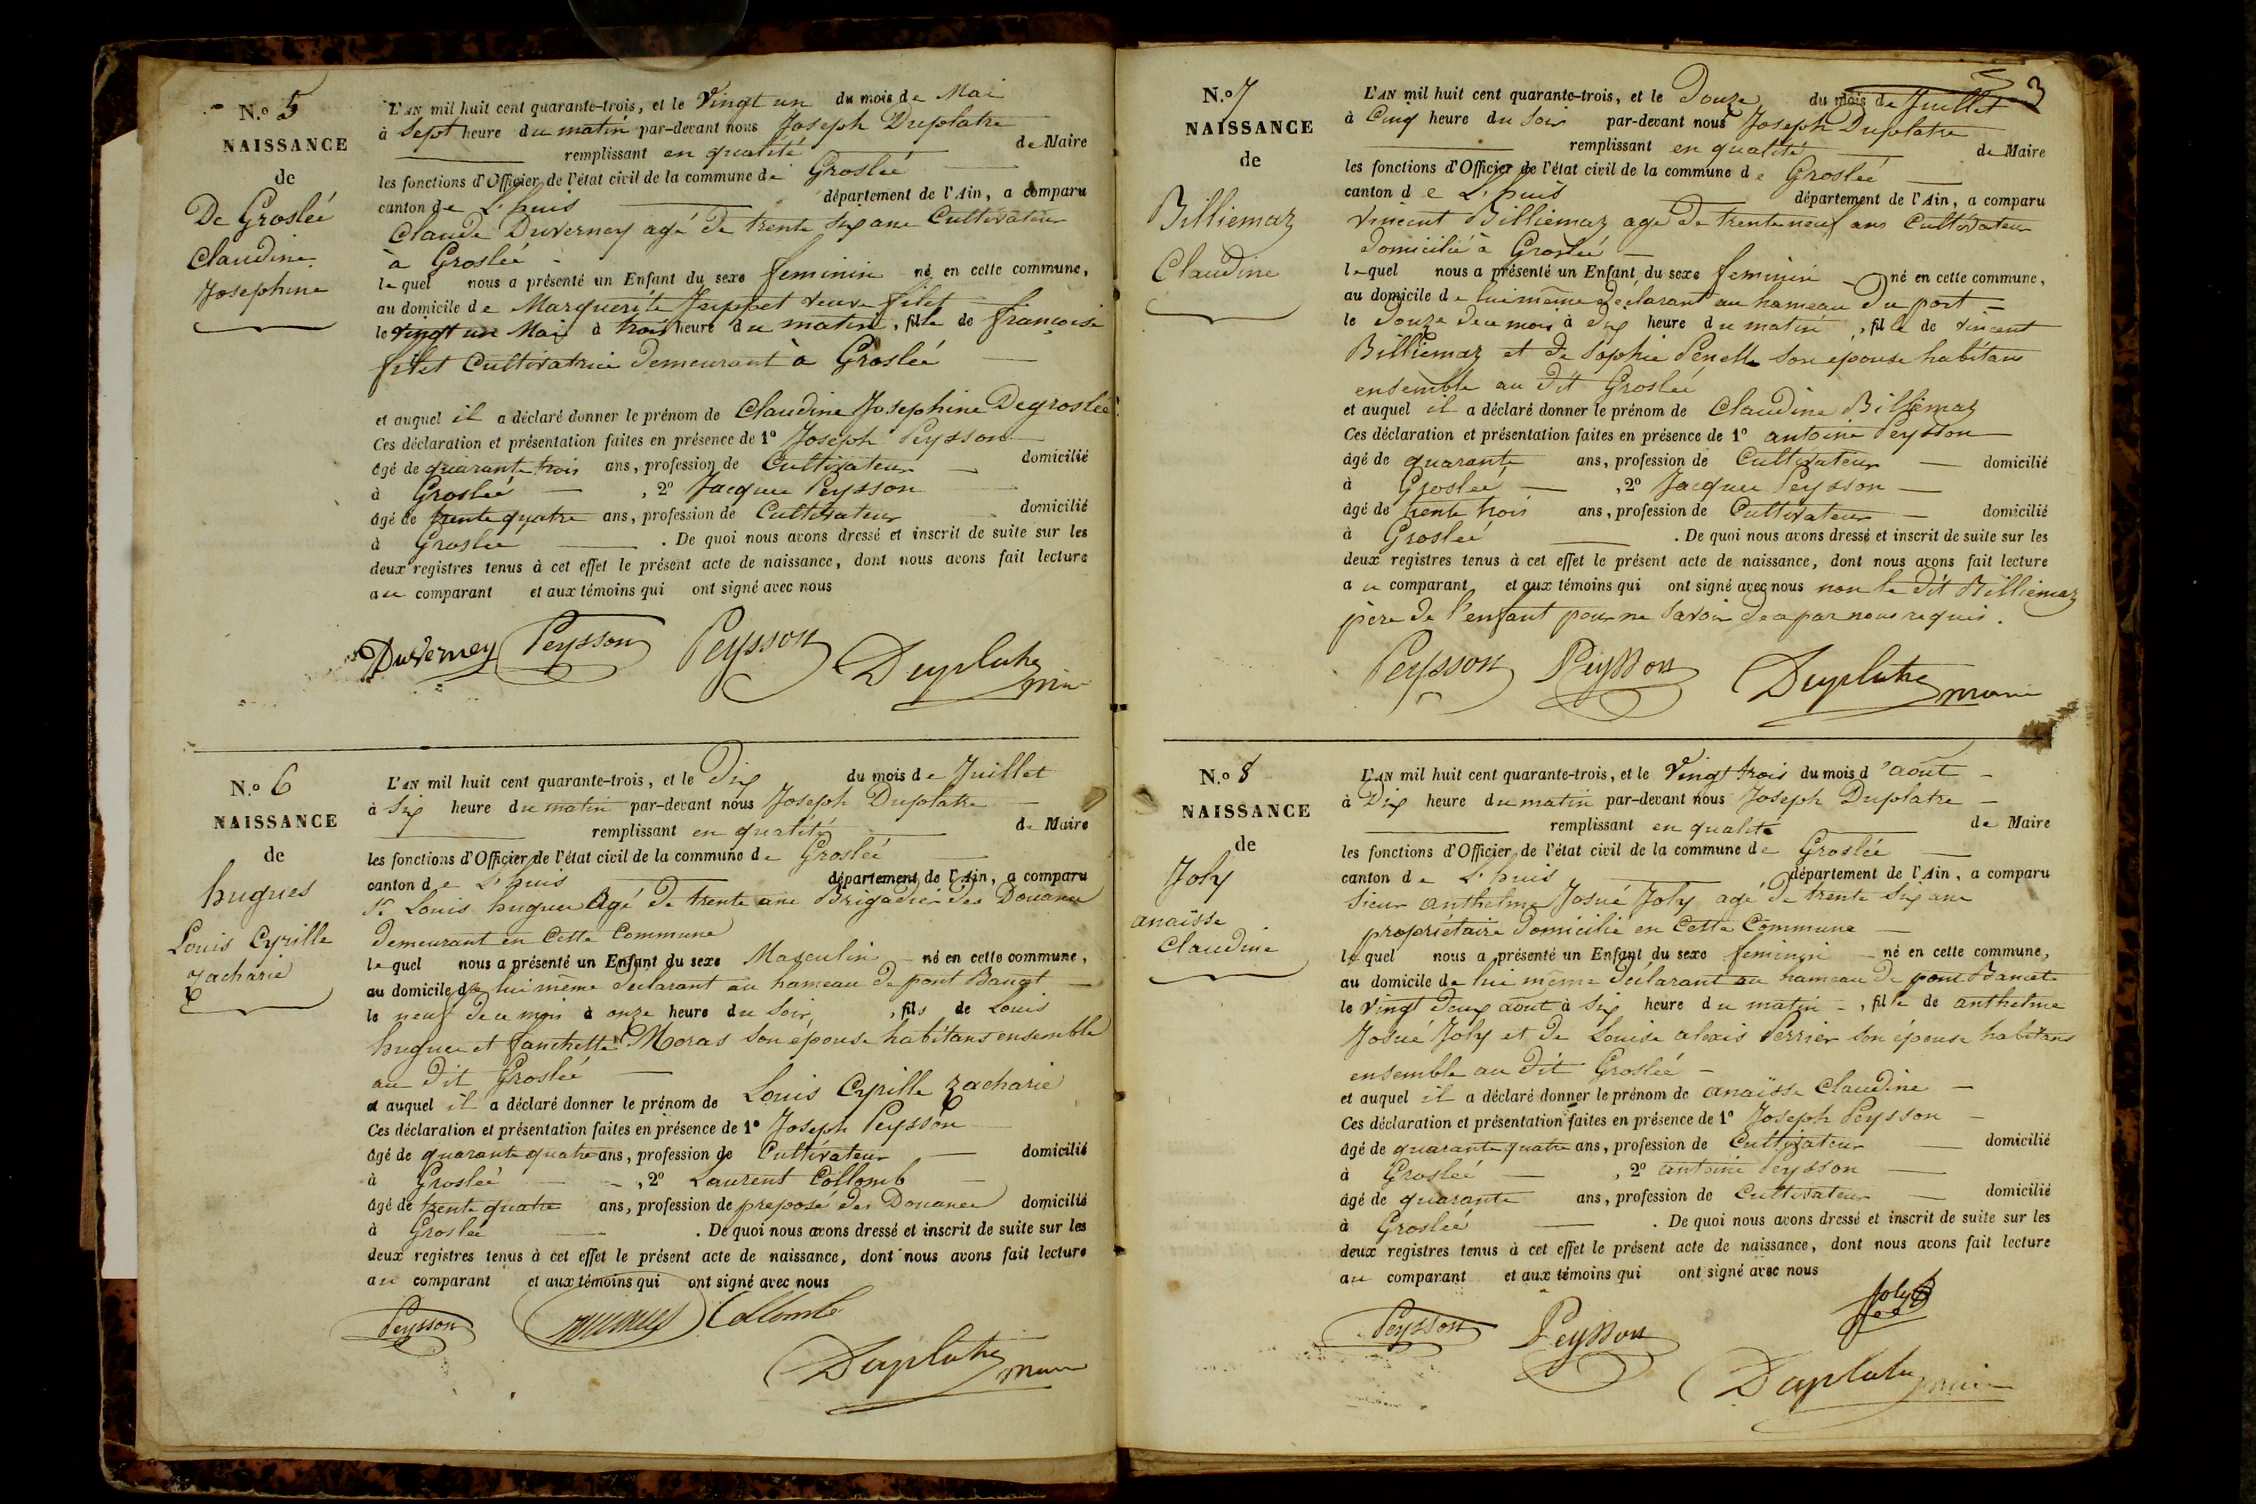 N.o 5
NAISSANCE
de
De Groslée
Claudine
Josephine
L'AN mil huit cent quarante-trois, et le Vingt un du mois de Mai
à Sept heure du matin par-devant nous Joseph Duplatre
remplissant en qualité de Maire
les fonctions d'Officier de l'état civil de la commune de Groslée
canton de L'huis département de l'Ain, a comparu
Claude Duverney agé de trente six ans Cultivateur
à Groslée
lequel nous a présenté un Enfant du sexe feminin né en cette commune,
au domicile de Marguerite veuve filet
le vingt un Mai à trois heure du matin, fille de françoise
filet Cultivatrice demeurant à Groslée
et auquel il a déclaré donner le prénom de Claudine Josephine Degroslée
Ces déclaration et présentation faites en présence de 1o Joseph Peysson
âgé de quarante trois ans, profession de Cultivateur domicilié
à Groslée , 2o Jacques Peysson
âgé de trente quatre ans, profession de Cultivateur domicilié
à Groslée . De quoi nous avons dressé et inscrit de suite sur les
deux registres tenus à cet effet le présent acte de naissance, dont nous avons fait lecture
au comparant et aux témoins qui ont signé avec nous
Duverney Peysson Peysson Duplatre
N.o 6
NAISSANCE
de
hugues
Louis Cyrille
Zacharie
L'AN mil huit cent quarante-trois, et le Dix du mois de Juillet
à Six heure du matin par-devant nous Joseph Duplatre
remplissant en qualité de Maire
les fonctions d'Officier de l'état civil de la commune de Groslée
canton de L'huis département de l'Ain, a comparu
Sr Louis hugues Agé de trente ans Brigadier des Douanes
demeurant en Cette Commune
lequel nous a présenté un Enfant du sexe Masculin né en cette commune,
au domicile de lui même déclarant au hameau de pont Bancet
le neuf de ce mois à onze heure du Soir, fils de Louis
hugues et fanchette Moras son épouse habitans ensemble
au dit Groslée
et auquel il a déclaré donner le prénom de Louis Cyrille Zacharie
Ces déclaration et présentation faites en présence de 1o Joseph Peysson
âgé de quarante quatre ans, profession de Cultivateur domicilié
à Groslée , 2o Laurent Collomb
âgé de trente quatre ans, profession de preposé des Douanes domicilié
à Groslée . De quoi nous avons dressé et inscrit de suite sur les
deux registres tenus à cet effet le présent acte de naissance, dont nous avons fait lecture
au comparant et aux témoins qui ont signé avec nous
Peysson hugues Collomb
Duplatre maire
3
N.o 7
NAISSANCE
de
Billiemaz
Claudine
L'AN mil huit cent quarante-trois, et le Douze du mois de Juillet
à Cinq heure du Soir par-devant nous Joseph Duplatre
remplissant en qualité de Maire
les fonctions d'Officier de l'état civil de la commune de Groslée
canton de L'huis département de l'Ain, a comparu
Vincent Billiemaz agé de trente neuf ans Cultivateur
domicilié à Groslée
lequel nous a présenté un Enfant du sexe feminin né en cette commune,
au domicile de lui même déclarant au hameau du port
le Douze de ce mois à dix heure du matin, fille de Vincent
Billiemaz et de Sophie Penelle son épouse habitans
ensemble au dit Groslée
et auquel il a déclaré donner le prénom de Claudine Billiemaz
Ces déclaration et présentation faites en présence de 1o antoine Peysson
âgé de quarante ans, profession de Cultivateur domicilié
à Groslée , 2o Jacques Peysson
âgé de trente trois ans, profession de Cultivateur domicilié
à Groslée . De quoi nous avons dressé et inscrit de suite sur les
deux registres tenus à cet effet le présent acte de naissance, dont nous avons fait lecture
au comparant et aux témoins qui ont signé avec nous non le dit Billiemaz
père de l'enfant pour ne savoir de ce par nous requis.
Peysson Peysson Duplatre maire
N.o 8
NAISSANCE
de
Joly
anaïsse
Claudine
L'AN mil huit cent quarante-trois, et le Vingt trois du mois d'août
à Dix heure du matin par-devant nous Joseph Duplatre
remplissant en qualité de Maire
les fonctions d'Officier de l'état civil de la commune de Groslée
canton de L'huis département de l'Ain, a comparu
Sieur anthelme Josué Joly agé de trente six ans
propriétaire domicilié en Cette Commune
lequel nous a présenté un Enfant du sexe feminin né en cette commune,
au domicile de lui même déclarant au hameau de pont Bancet
le vingt deux août à six heure du matin, fille de anthelme
Josué Joly et de Louise alexis Perrier son épouse habitans
ensemble au dit Groslée
et auquel il a déclaré donner le prénom de anaïsse Claudine
Ces déclaration et présentation faites en présence de 1o Joseph Peysson
âgé de quarante quatre ans, profession de Cultivateur domicilié
à Groslée , 2o antoine Peysson
âgé de quarante ans, profession de Cultivateur domicilié
à Groslée . De quoi nous avons dressé et inscrit de suite sur les
deux registres tenus à cet effet le présent acte de naissance, dont nous avons fait lecture
au comparant et aux témoins qui ont signé avec nous
Peysson Peysson Joly
Duplatre maire